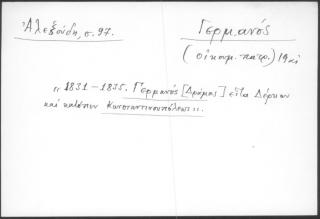 Ἀλεξούδη, σ. 97.
Γερμανός
(οἰκουμ. πατρ.) 19 αἰ
" 1831 - 1835. Γερμανός [Δράμας] εἶτα Δέρκων
καὶ κατόπιν Κωνσταντινουπόλεως ".